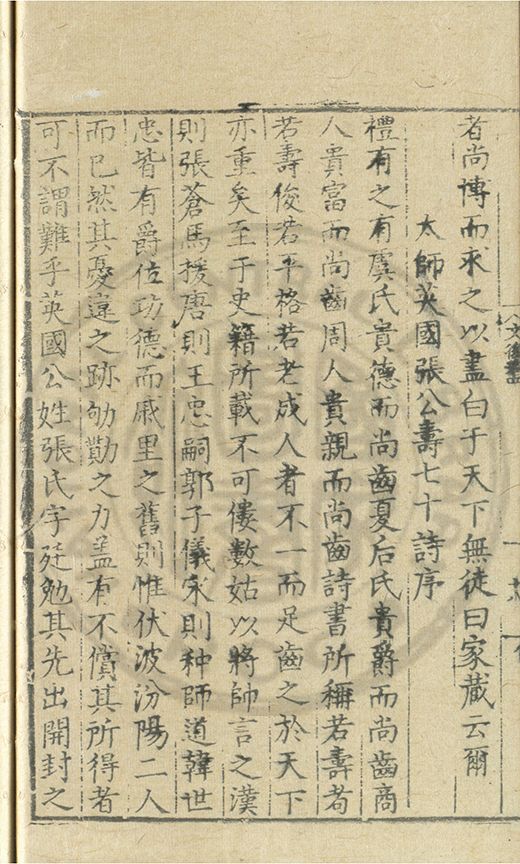 者尚博而求之以盡白于天下無徒曰家藏云爾
太師英國張公壽七十詩序
禮有之有虞氏貴德而尚齒夏后氏貴爵而尚齒商
人貴富而尚齒周人貴親而尚齒詩書所稱若壽耇
若壽俊若平格若老成人者不一而足齒之於天下
亦重矣至于史籍所載不可僂數姑以將帥言之漢
則張蒼馬援唐則王忠嗣郭子儀宋則种師道韓世
忠皆有爵位功德而戚里之舊則惟伏波汾陽二人
而已然其憂違之跡劬勩之力盖有不償其所得者
可不謂難乎英國公姓張氏字廷勉其先出開封之